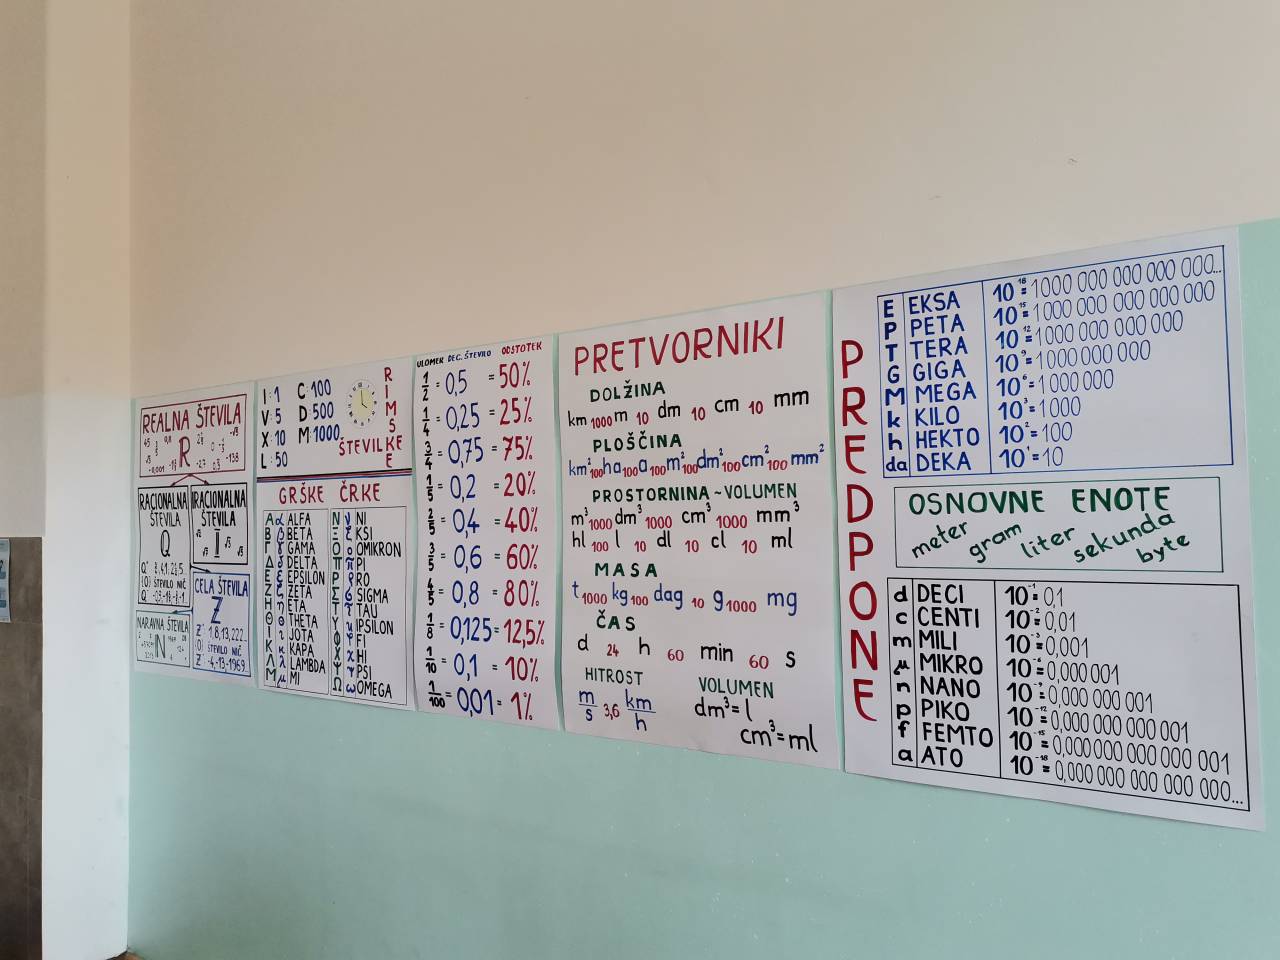 REALNA ŠTEVILA
R
RACIONALNA ŠTEVILA
Q
{0} ŠTEVILO NIČ
IRACIONALNA ŠTEVILA
I
CELA ŠTEVILA
Z
Z⁺ 1,8,13,222...
{0} ŠTEVILO NIČ
Z⁻ -4,-13,-1969...
NARAVNA ŠTEVILA
N
RIMSKE ŠTEVILKE
I:1 C:100
V:5 D:500
X:10 M:1000
L:50
GRŠKE ČRKE
Α α ALFA
Β β BETA
Γ γ GAMA
Δ δ DELTA
Ε ε EPSILON
Ζ ζ ZETA
Η η ETA
Θ θ THETA
Ι ι JOTA
Κ κ KAPA
Λ λ LAMBDA
Μ μ MI
Ν ν NI
Ξ ξ KSI
Ο ο OMIKRON
Π π PI
Ρ ρ RO
Σ σ SIGMA
Τ τ TAU
Υ υ IPSILON
Φ φ FI
Χ χ HI
Ψ ψ PSI
Ω ω OMEGA
ULOMEK DEC. ŠTEVILO ODSTOTEK
1/2 = 0,5 = 50%
1/4 = 0,25 = 25%
3/4 = 0,75 = 75%
1/5 = 0,2 = 20%
2/5 = 0,4 = 40%
3/5 = 0,6 = 60%
4/5 = 0,8 = 80%
1/8 = 0,125 = 12,5%
1/10 = 0,1 = 10%
1/100 = 0,01 = 1%
PRETVORNIKI
DOLŽINA
km 1000 m 10 dm 10 cm 10 mm
PLOŠČINA
km² 100 ha 100 a 100 m² 100 dm² 100 cm² 100 mm²
PROSTORNINA ~ VOLUMEN
m³ 1000 dm³ 1000 cm³ 1000 mm³
hl 100 l 10 dl 10 cl 10 ml
MASA
t 1000 kg 100 dag 10 g 1000 mg
ČAS
d 24 h 60 min 60 s
HITROST
m/s 3,6 km/h
VOLUMEN
dm³=l
cm³=ml
PREDPONE
E EKSA 10¹⁸=1000 000 000 000 000...
P PETA 10¹⁵=1000 000 000 000 000
T TERA 10¹²=1000 000 000 000
G GIGA 10⁹=1000 000 000
M MEGA 10⁶=1000 000
k KILO 10³=1000
h HEKTO 10²=100
da DEKA 10¹=10
OSNOVNE ENOTE
meter gram liter sekunda byte
d DECI 10⁻¹=0,1
c CENTI 10⁻²=0,01
m MILI 10⁻³=0,001
μ MIKRO 10⁻⁶=0,000 001
n NANO 10⁻⁹=0,000 000 001
p PIKO 10⁻¹²=0,000 000 000 001
f FEMTO 10⁻¹⁵=0,000 000 000 000 001
a ATO 10⁻¹⁸=0,000 000 000 000 000...